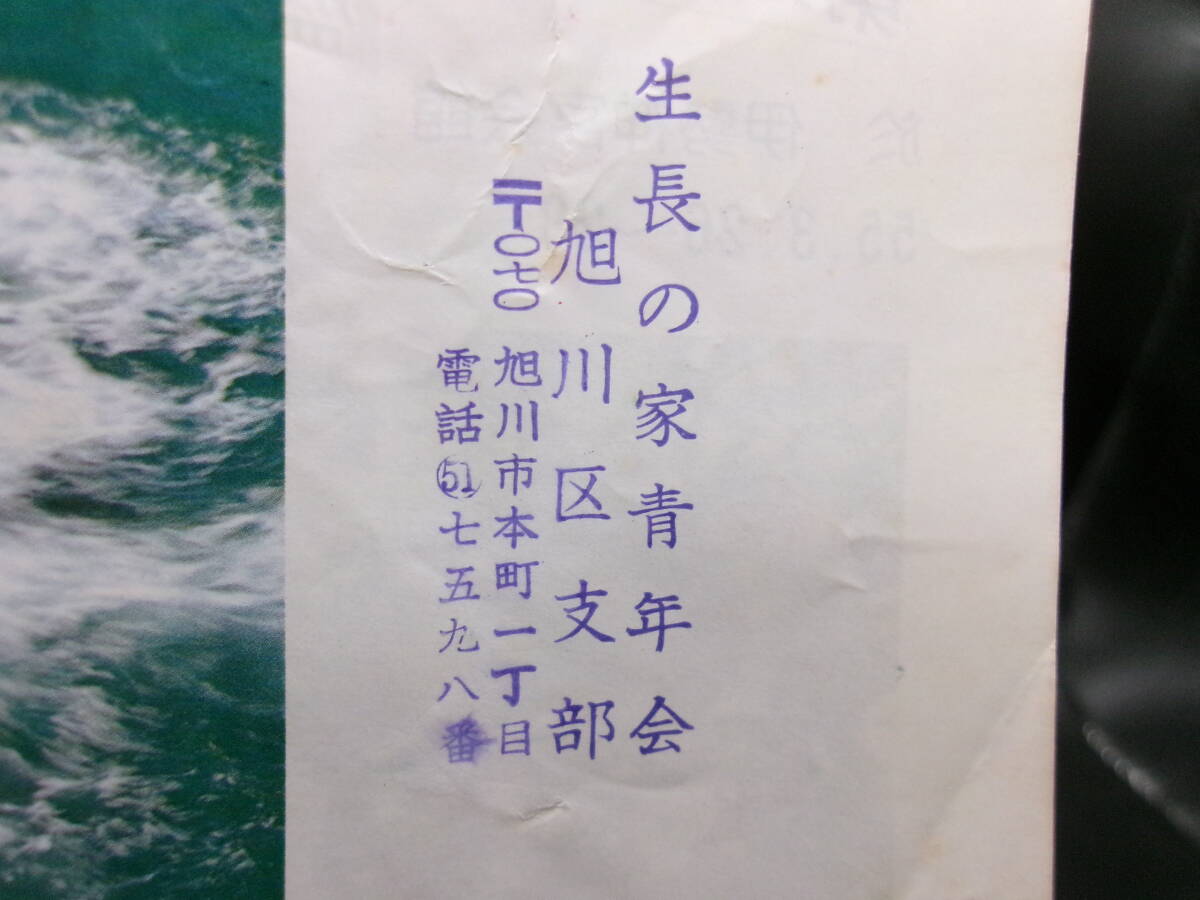 生長の家青年会
旭川区支部
〒〇七〇 旭川市本町一丁目
電話(51)七五九八番